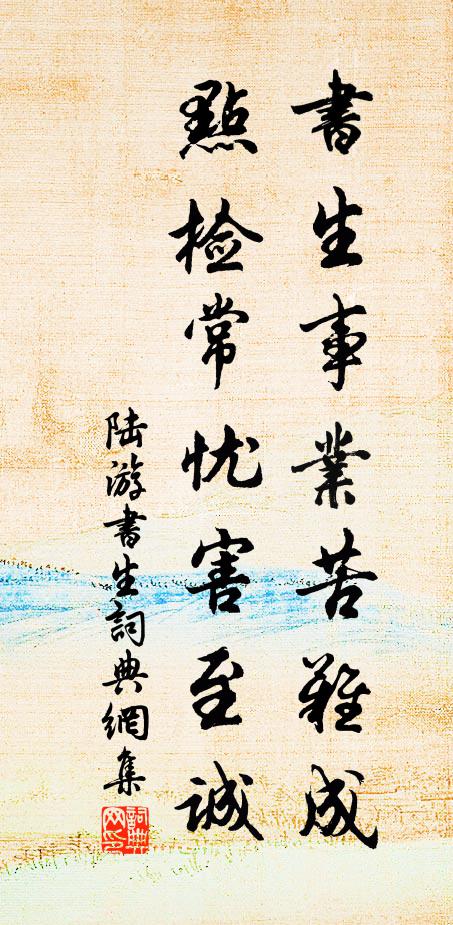 書生事業苦難成
點檢常忧害至誠
陆游書生詞典網集
詞典网印